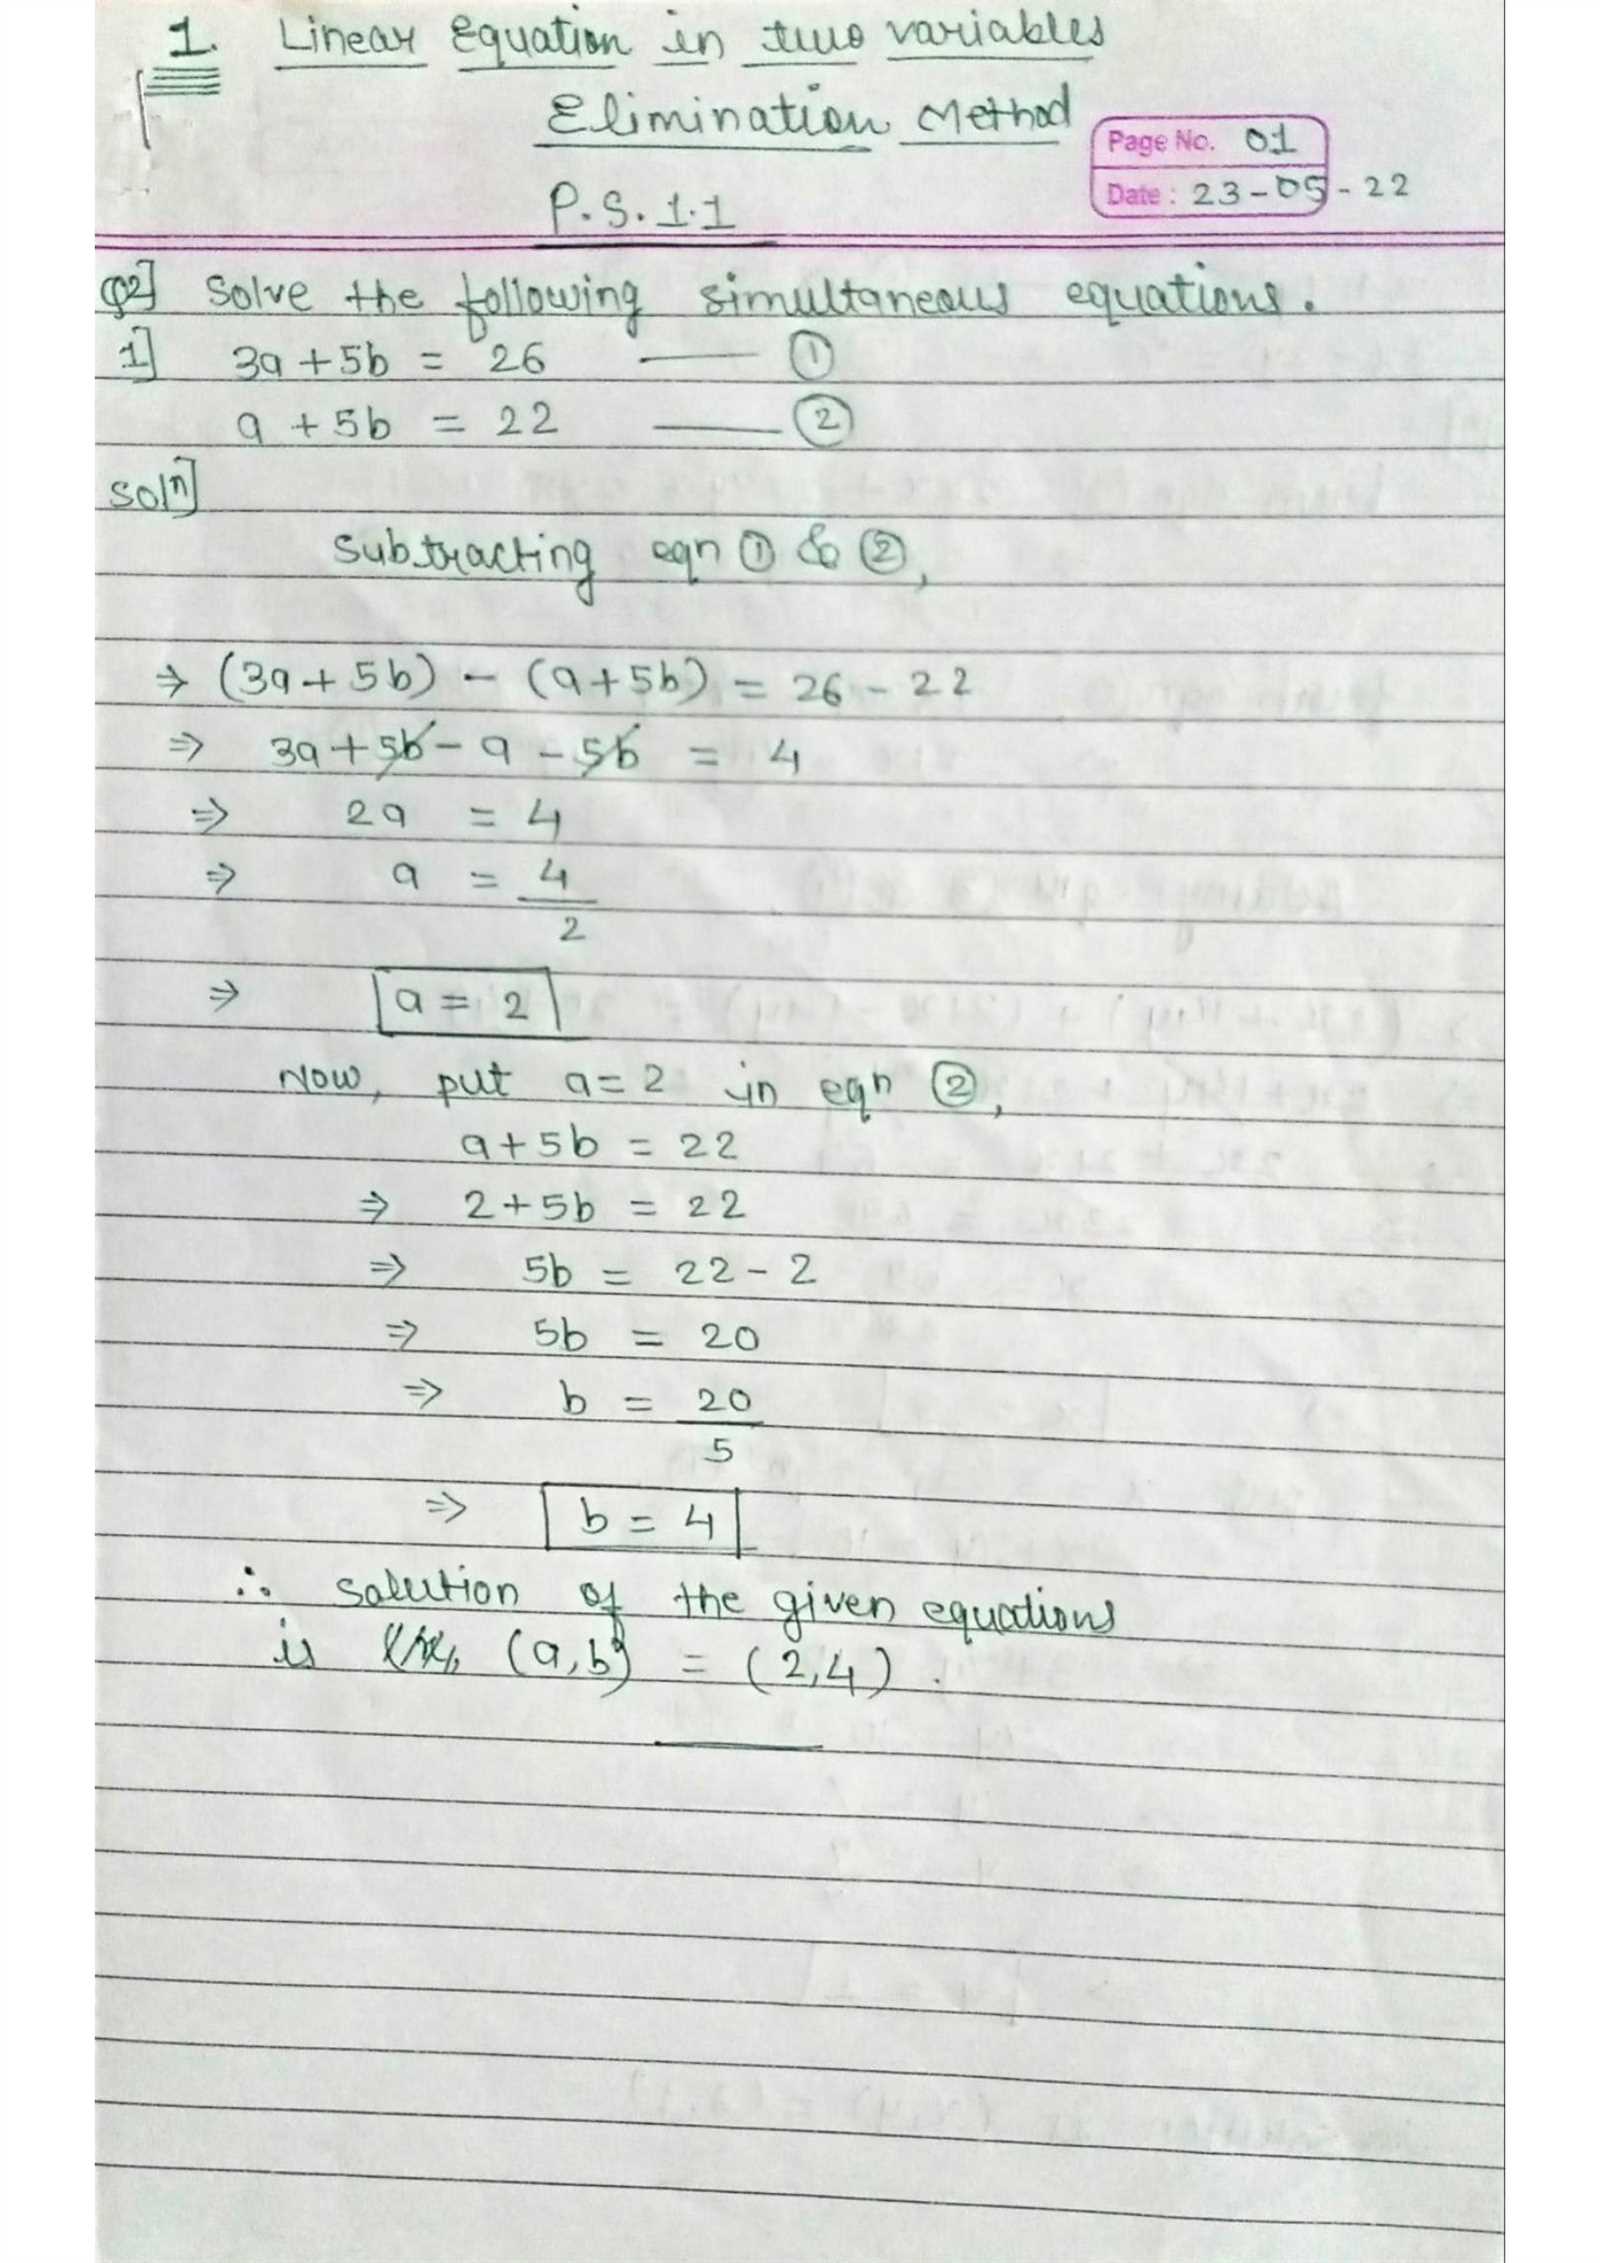 1. Linear Equation in two variables
Elimination Method
Page No. 01
Date : 23-05-22
P.S.1.1
Q2] Solve the following simultaneous equations.
1] 3a + 5b = 26 —— ①
a + 5b = 22 —— ②
Solⁿ]
Subtracting eqn ① & ②,
⇒ (3a + 5b) - (a + 5b) = 26 - 22
⇒ 3a + 5b - a - 5b = 4
⇒ 2a = 4
⇒ a = 4
2
⇒ a = 2
Now, put a = 2 in eqⁿ ②,
a + 5b = 22
⇒ 2 + 5b = 22
⇒ 5b = 22 - 2
⇒ 5b = 20
⇒ b = 20
5
⇒ b = 4
∴ solution of the given equations
is (a, b) = (2,4).